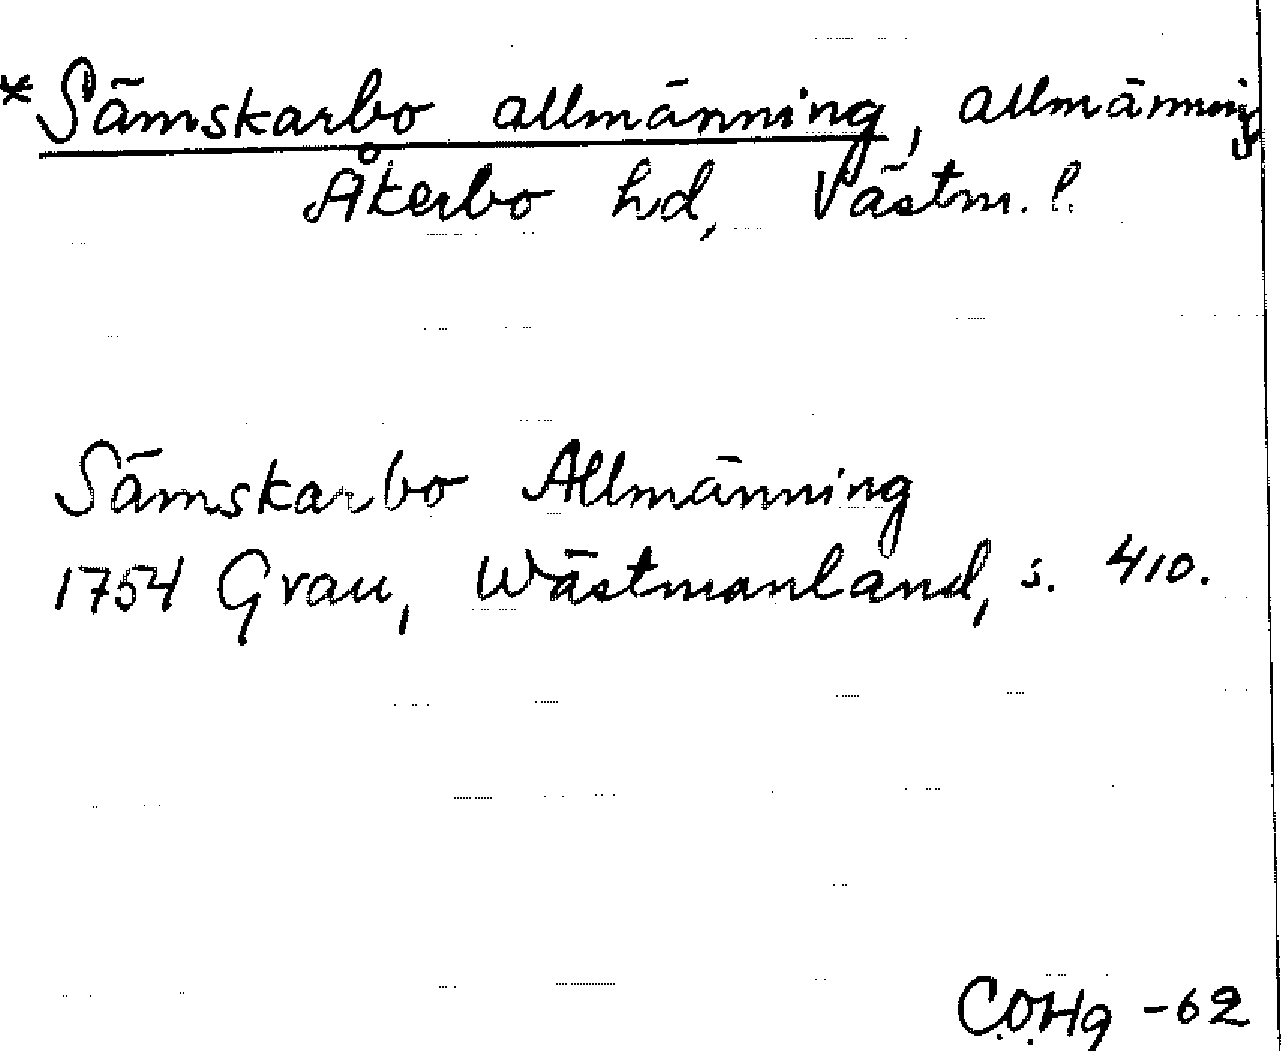 *Sämskarbo allmänning, allmänning
Åkerbo hd, Västm. l.
Sämskarbo Allmänning
1754 Grau, Wästmanland, s. 410.
C.O.Hg -62